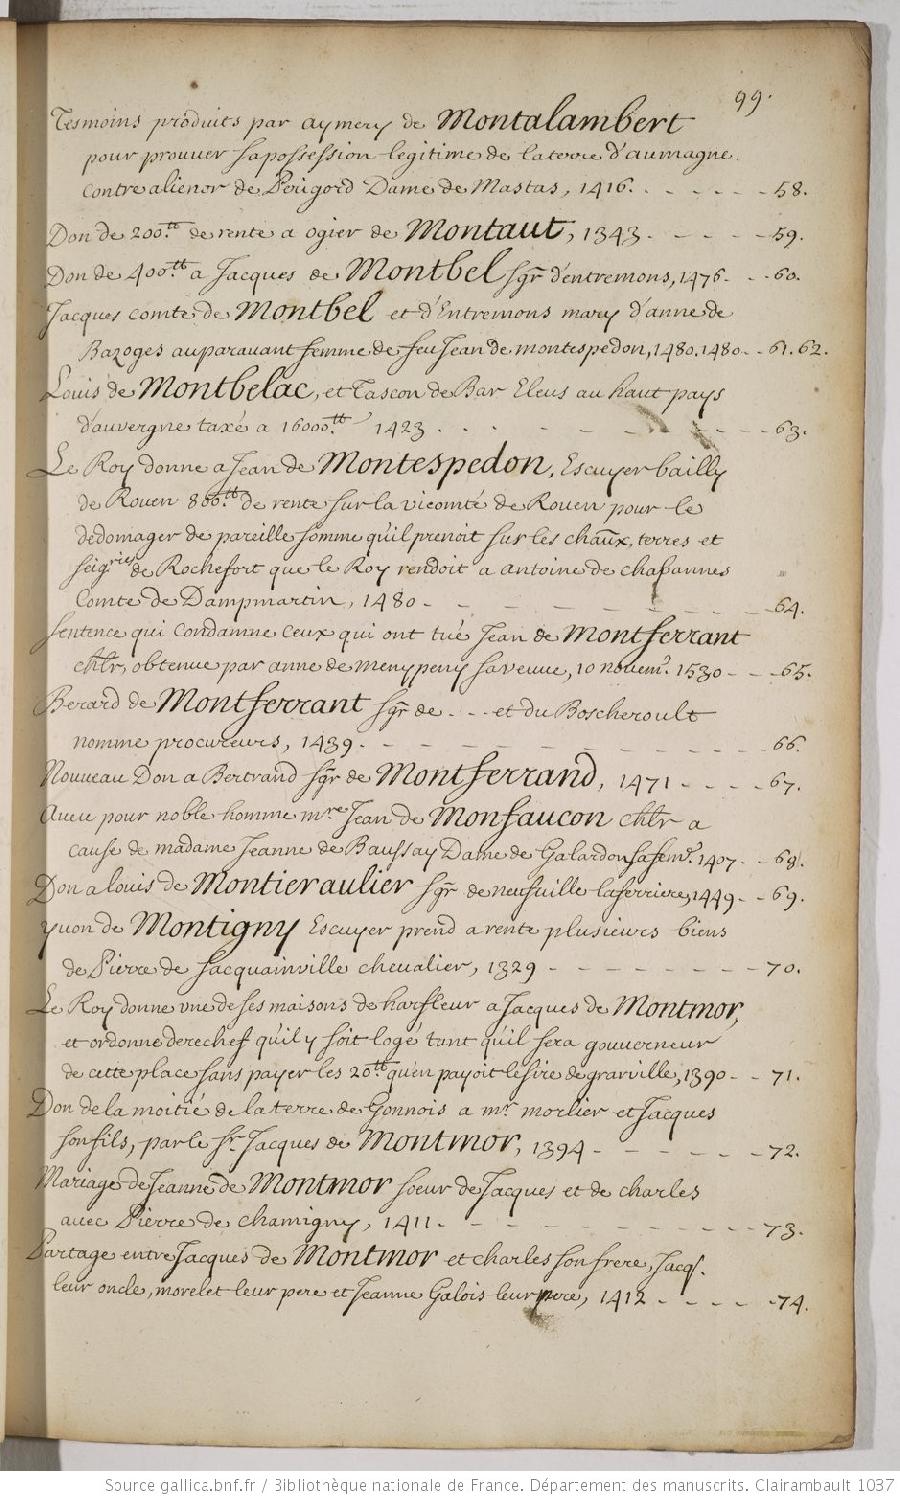 99.
Tesmoins produits par aymery de Montalambert
pour prouver sa possession legitime de la terre d'aumagne
contre alienor de Perigord Dame de Mastas, 1416. - - - - - 58.
Don de 200.tt de rente a ogier de Montaut, 1343. - - - - 59.
Don de 400.tt a Jacques de Montbel sgr d'entremons, 1476. - - 60.
Jacques comte de Montbel et d'Entremons mary d'anne de
Bazoges auparauant femme de feu Jean de montespedon, 1480. 1480. - 61. 62.
Louis de Montbelac, et Tascon de Bar Eleus au haut pays
d'auvergne taxé a 16000.tt 1423 - - - - - - 63.
Le Roy donne a Jean de Montespedon, Escuyer bailly
de Rouen 800.tt de rente sur la vicomté de Rouen pour le
dedomager de pareille somme qu'il prenoit sur les chãux, terres et
seigries de Rochefort que le Roy rendoit a antoine de chabannes
Comte de Dampmartin, 1480 - - - - - - 64.
Sentence qui Condamne Ceux qui ont tué Jean de Montferrant
chlr, obtenue par anne de menypeny sa veuue, 10 nouem. 1530 - - - 65.
Berard de Montferrant sgr de . - - et du Boscheroult
nomme procureurs, 1439. - - - - - - 66.
Nouveau Don a Bertrand sgr de Montferrand, 1471 - - - - 67.
Aueu pour noble homme mre Jean de Monfaucon chlr a
cause de madame Jeanne de Baussay Dame de Galardon sa fem. 1407 - - 68.
Don a louis de Montieraulier sgr de neufuille laferriere, 1449 - - 69.
yuon de Montigny Escuyer prend a rente plusieurs biens
de Pierre de Jacquainville cheualier, 1329 - - - - - - 70.
Le Roy donne vne de ses maisons de harfleur a Jacques de Montmor,
et ordonne derechef qu'il y soit logé tant qu'il sera gouuerneur
de cette place sans payer les 20.tt qu'en payoit le sire de grarville, 1390 - - 71.
Don de la moitié de la terre de Gonnois a mr. morlier et Jacques
son fils, par le sr. Jacques de Montmor, 1394 - - - - - 72.
Mariage de Jeanne de Montmor soeur de Jacques et de charles
auec Pierre de chamigny, 1411. - - - - - - 73.
Partage entre Jacques de Montmor et charles son frere, Jacqs.
leur oncle, morelet leur pere et Jeanne Galois leur mere, 1412 - - - - 74.
Source gallica.bnf.fr / Bibliothèque nationale de France. Département des manuscrits. Clairambault 1037